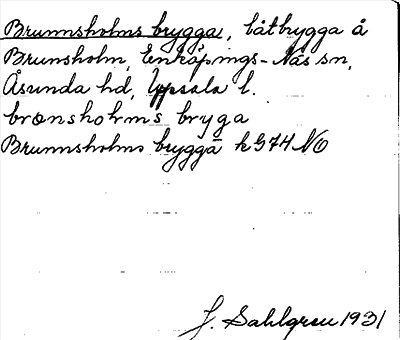 Brunnsholms brygga, båtbrygga å
Brunsholm, Enköpings-Näs sn,
Åsunda hd, Uppsala l.
brønshohms bryga
Brunnsholms bryggä k 974 NO
J. Sahlgren 1931